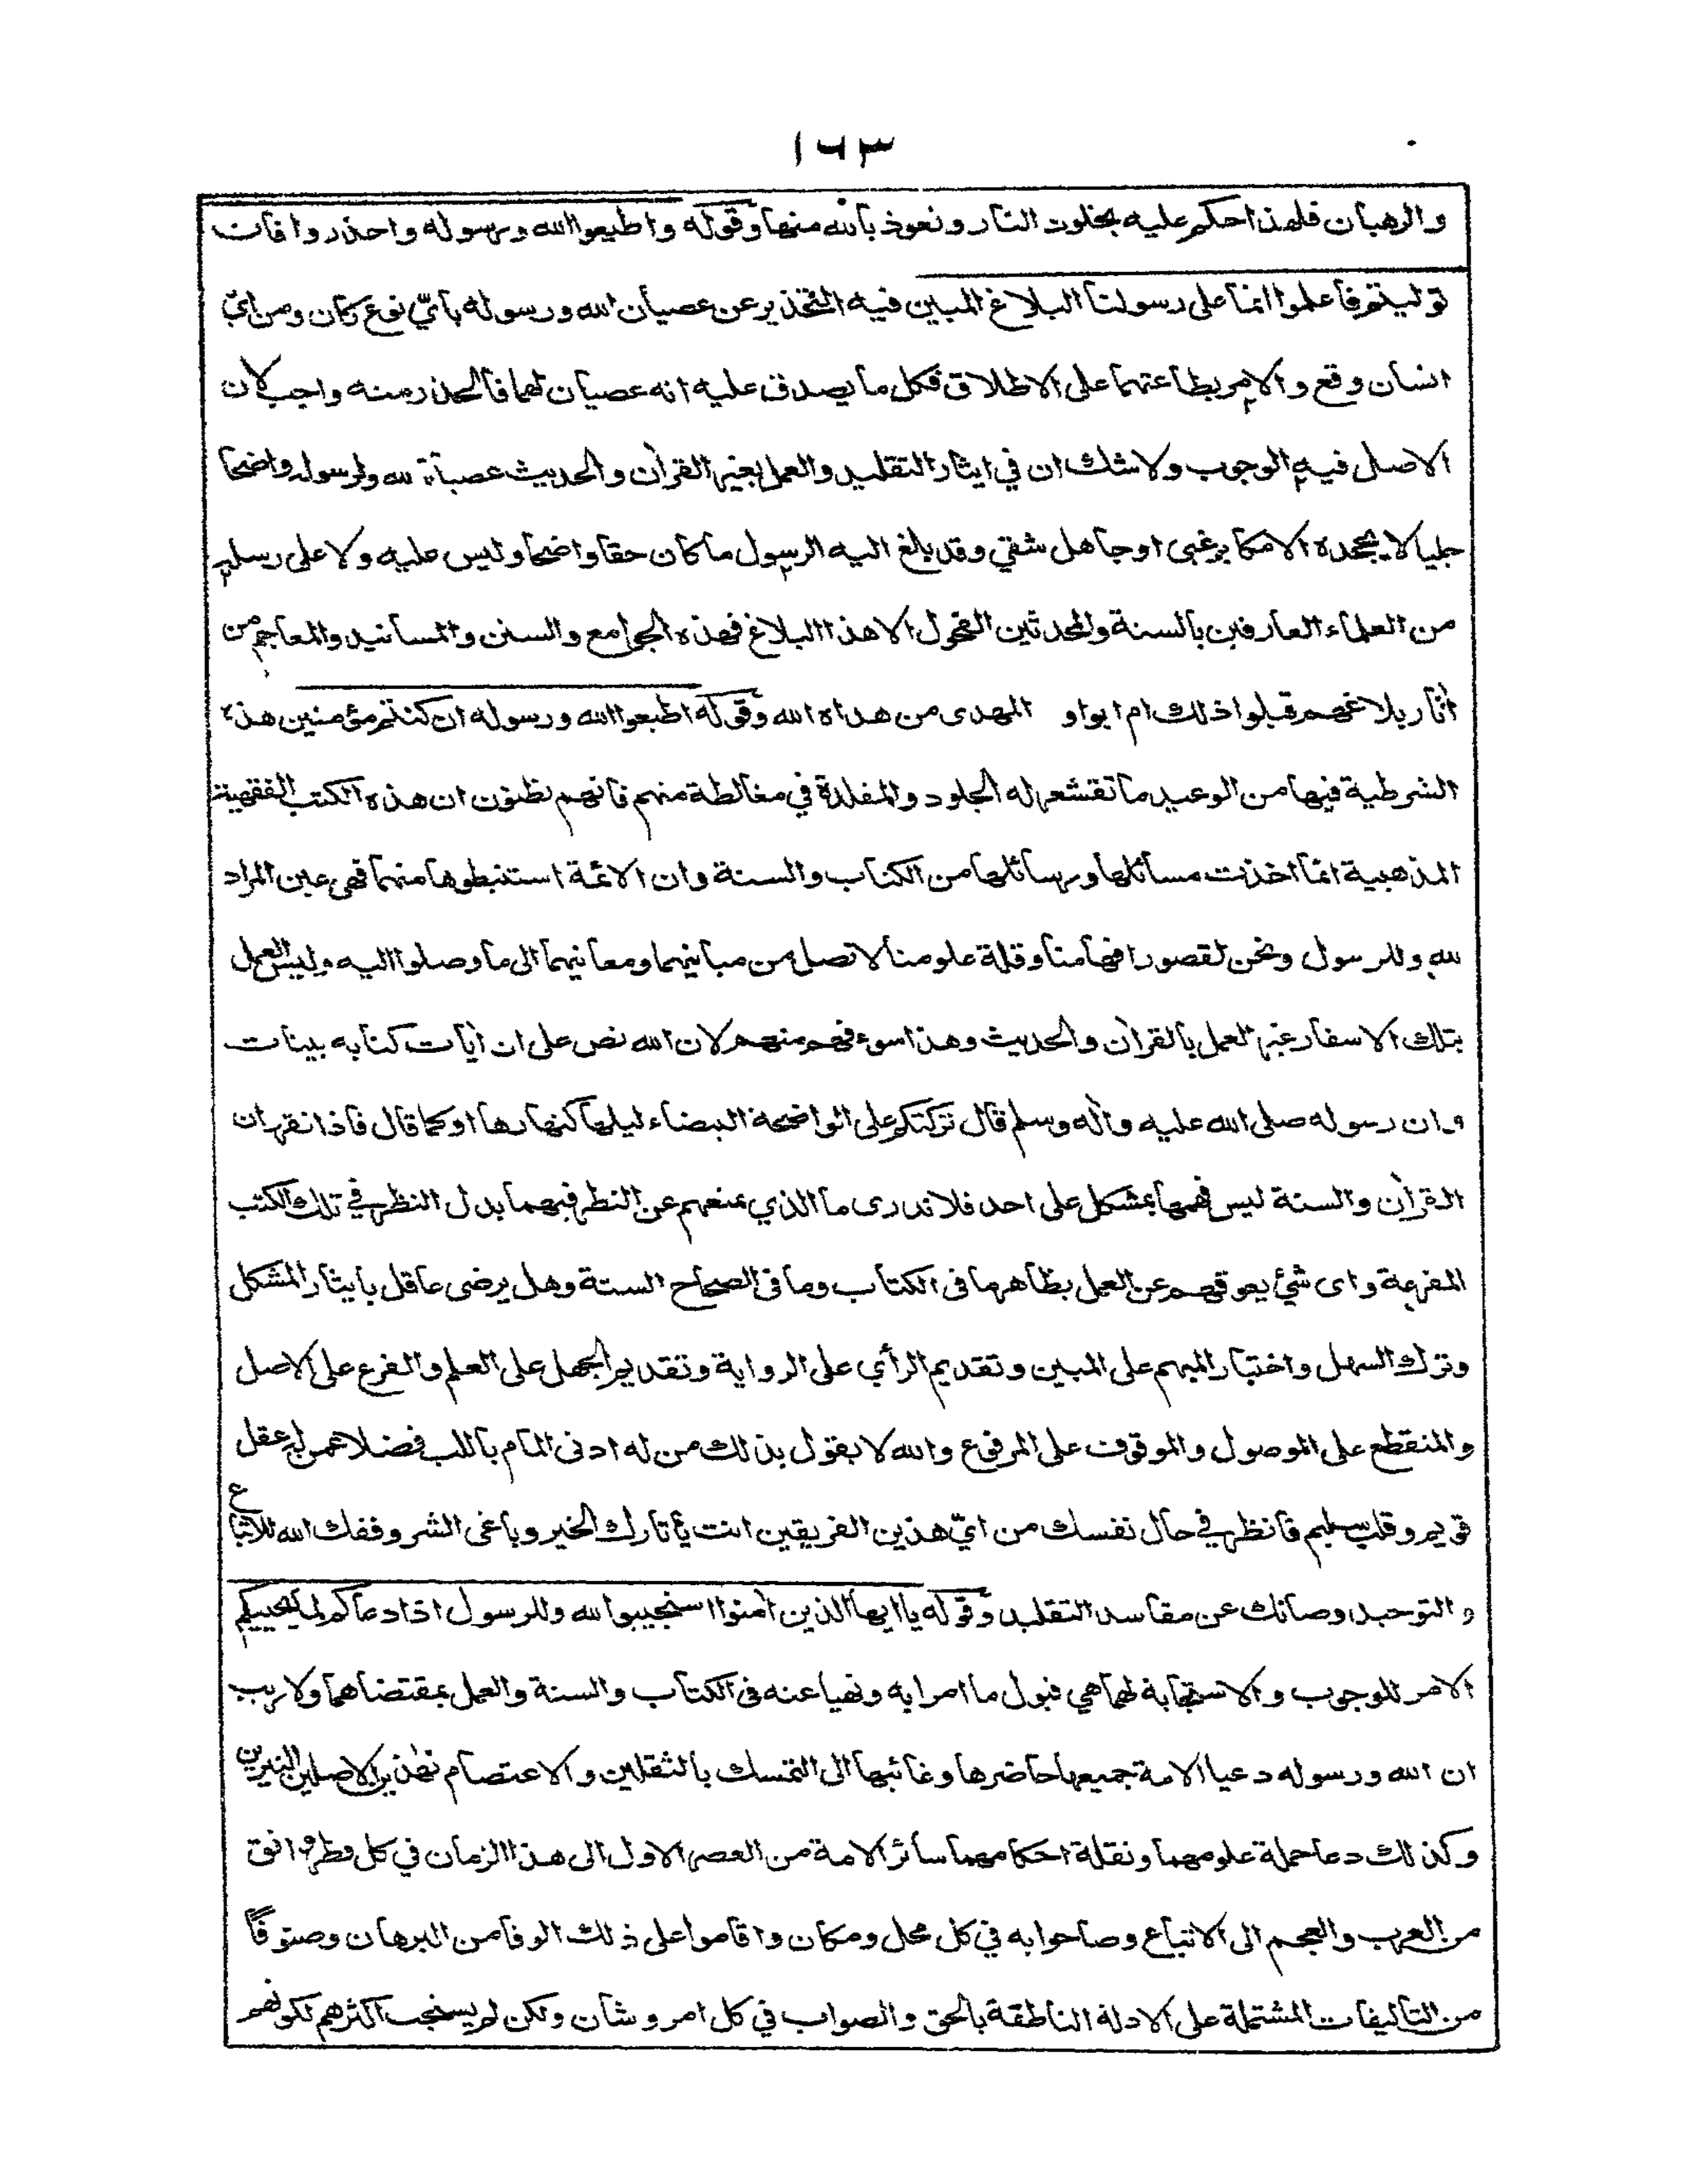 ١٦٣
والرهبان فلهذا حكم عليه بخلود النار ونعوذ بالله منها وقوله واطيعوا الله ورسوله واحذروا فان
توليتم فاعلموا انما على رسولنا البلاغ المبين فيه التحذير عن عصيان الله ورسوله بأيّ نوع كان ومن ايّ
انسان وقع والامر بطاعتهما على الاطلاق فكل ما يصدق عليه انه عصيان لهما فالحذر منه واجب لان
الاصل فيه الوجوب ولا شك ان في ايثار التقليد والعمل بغير القرآن والحديث عصيانا لله ولرسوله واضحا
جليا لا يجحده الا مكابر غبى او جاهل شقي وقد بلغ اليه الرسول ما كان حقا واضحا وليس عليه ولا على رسليه
من العلماء العارفين بالسنة والمحدثين الفحول الا هذا البلاغ فهذه الجوامع والسنن والمسانيد والمعاجم من
أثار بلاغهم قبلوا ذلك ام ابوا و المهدى من هداه الله وقوله اطيعوا الله ورسوله ان كنتم مؤمنين هذه
الشرطية فيها من الوعيد ما تقشعر له الجلود والمقلدة في مغالطة منهم فانهم يظنون ان هذه الكتب الفقهية
المذهبية انما اخذت مسائلها ورسائلها من الكتاب والسنة وان الائمة استنبطوها منهما فهى عين المراد
لله وللرسول ونحن لقصور افهامنا وقلة علومنا لا تصل من مبانيهما ومعانيهما الى ما وصلوا اليه وليس العمل
بتلك الاسفار غير العمل بالقرآن والحديث وهذا سوء فهم منهم لان الله نص على ان أيات كتابه بينات
وان رسوله صلى الله عليه وأله وسلم قال تركتكم على الواضحة البيضاء ليلها كنهارها او كما قال فاذا تقرر ان
القرأن والسنة ليس فهمها بمشكل على احد فلا ندرى ما الذي يمنعهم عن النظر فيهما بدل النظر في تلك الكتب
المفرعة واى شئ يعوقهم عن العمل بظاهر ما فى الكتاب وما فى الصحاح الستة وهل يرضى عاقل بايثار المشكل
وترك السهل واختيار المبهم على المبين وتقديم الرأي على الرواية وتقديم الجهل على العلم والفرع على الاصل
والمنقطع على الموصول والموقوف على المرفوع والله لا يقول بذلك من له ادنى المام باللب فضلا عمن له عقل
قويم وقلب سليم فانظر في حال نفسك من ايّ هذين الفريقين انت يا تارك الخير وباغى الشر وفقك الله للاتباع
و التوحيد وصانك عن مفاسد التقليد وقوله يا ايها الذين أمنوا استجيبوا لله وللرسول اذا دعاكم لما يحييكم
الامر للوجوب والاستجابة لهما هي قبول ما امرا به ونهيا عنه فى الكتاب والسنة والعمل بمقتضاهما ولا ريب
ان الله ورسوله دعيا الامة جميعها حاضرها وغائبها الى التمسك بالثقلين والاعتصام بهذين الاصلين النيرين
وكذلك دعا حملة علومهما ونقلة احكامهما سائر الامة من العصر الاول الى هذا الزمان في كل قطر وافق
من العرب والعجم الى الاتباع وصاحوا به في كل محل ومكان واقاموا على ذلك الوفا من البرهان وصنوفاً
من التاليفات المشتملة على الادلة الناطقة بالحق والصواب في كل امر وشأن ولكن لم يستجب اكثرهم لكونهم